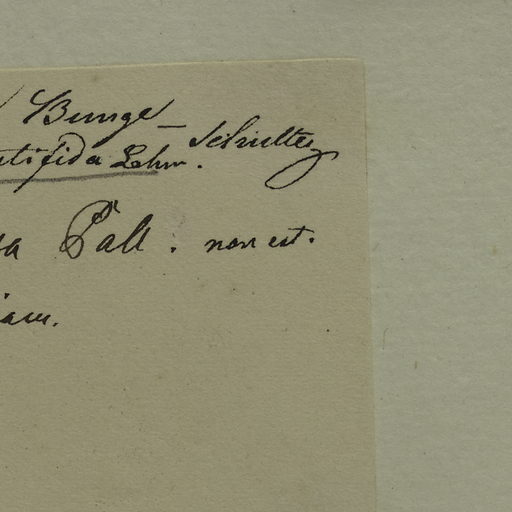 Bunge –
Schultes
tifida Lehm.
Pall. non est.